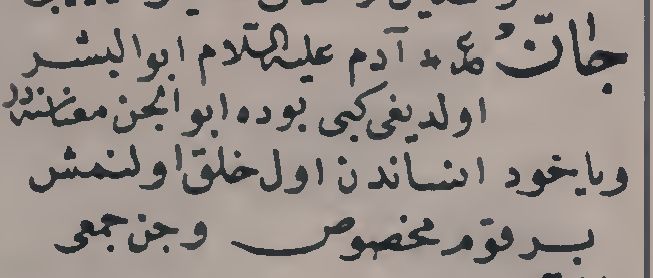 جانّ ع آدم عليه السلام ابوالبشر
اولديغى كبى بو ده ابوالجن معناسنه در
وياخود انساندن اول خلق اولنمش
بر قوم مخصوص و جن جمعى